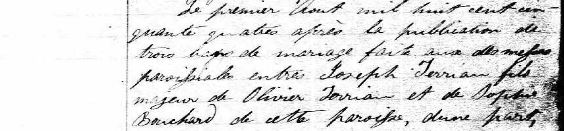 Le premier Aout mil huit cent cin-
quante quatre après la publication de
trois bans de mariage faite aux des messes
paroissiales entre Joseph Terrian fils
majeur de Olivier Terrian et de Sophie
Bouchard de cette paroisse, d'une part,